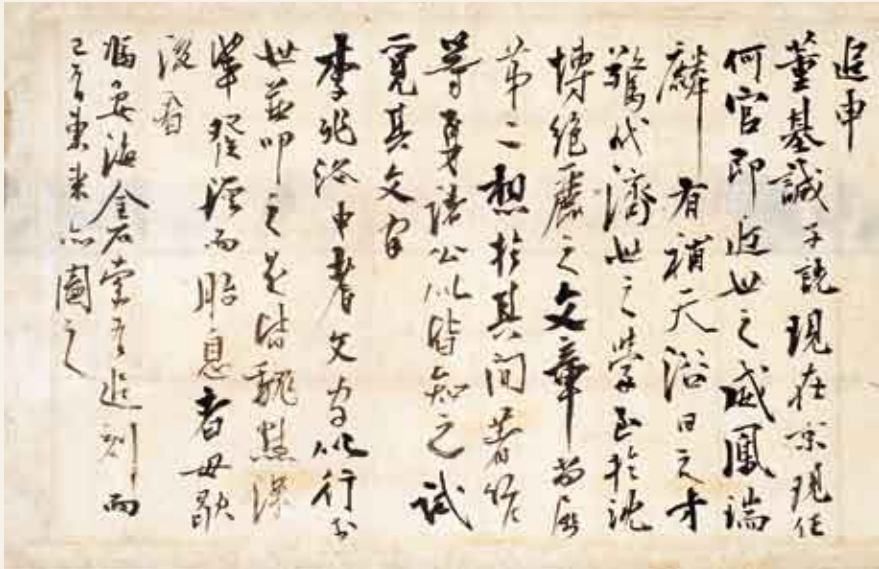 追申
董基誠子詵現在京現任
何官即近世之威鳳瑞
麟有補天浴日之才
驚代濟世之學至於沈
博絶麗之文章尚屬
第二想於其間著作
等身諸公以皆知之試
覓其文字
李兆洛申耆文字似行於
世並叩之皆深
而息者毋歇
後看
馮晏海金石索追刻而
已有東來亦圖之